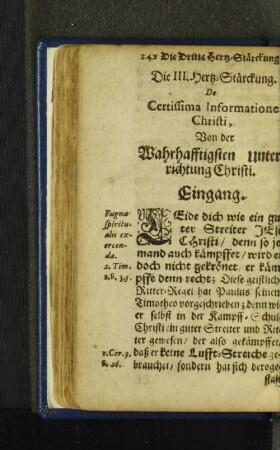 242 Die Dritte Hertz-Stärckung
Die III. Hertz-Stärckung.
De
Certissima Informatione
Christi,
Von der
Wahrhafftigsten Unter
richtung Christi.
Eingang.
Pugna
spiritu-
alis ex-
ercen-
da.
2. Tim.
2.v.3.5.
LEide dich wie ein gu
ter Streiter JEsu
Christi / denn so je
mand auch kämpffet / wird er
doch nicht gekrönet, er käm
pffe denn recht; Diese geistlich
Ritter-Regel hat Paulus seinem
Timotheo vorgeschrieben; denn wie
er selbst in der Kampff-Schul
Christi ein guter Streiter und Rit
ter gewesen / der also gekämpffet
1.Cor.9.
v.26.
daß er keine Lufft-Streiche ge
brauchet, sondern hat sich deroge
stalt